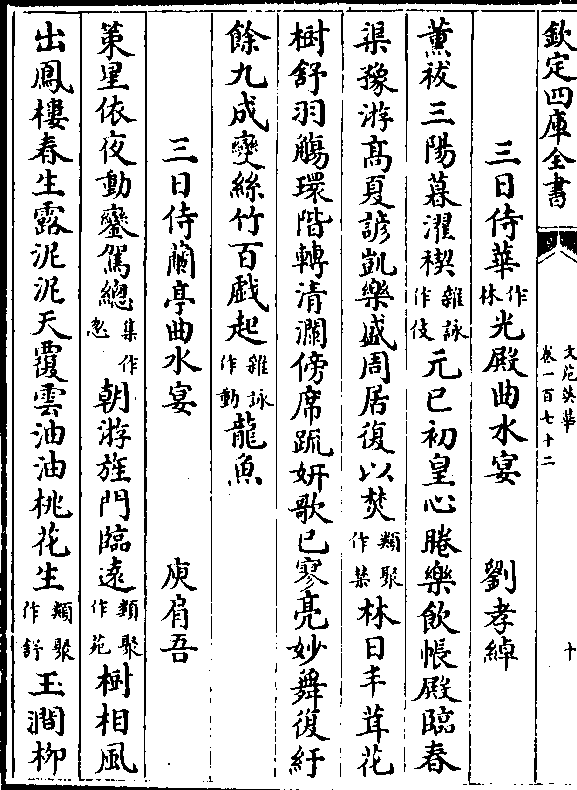 欽定四庫全書
文苑英華
卷一百七十二
十
三日侍華作林光殿曲水宴 劉孝綽
薰祓三陽暮濯禊雜詠作伎元巳初皇心睠樂飲帳殿臨春
渠豫游髙夏諺凱樂盛周居復以焚類聚作禁林日丰茸花
樹舒羽觴環階轉清瀾傍席䟽妍歌已寥亮妙舞復紆
餘九成變絲竹百戲起雜詠作動龍魚
三日侍蘭亭曲水宴 庾肩吾
䇿里依夜動鑾駕總集作怱朝游旌門臨逺類聚作苑樹相風
出鳳樓春生露泥泥天覆雲油油桃花生類聚作舒玉澗柳